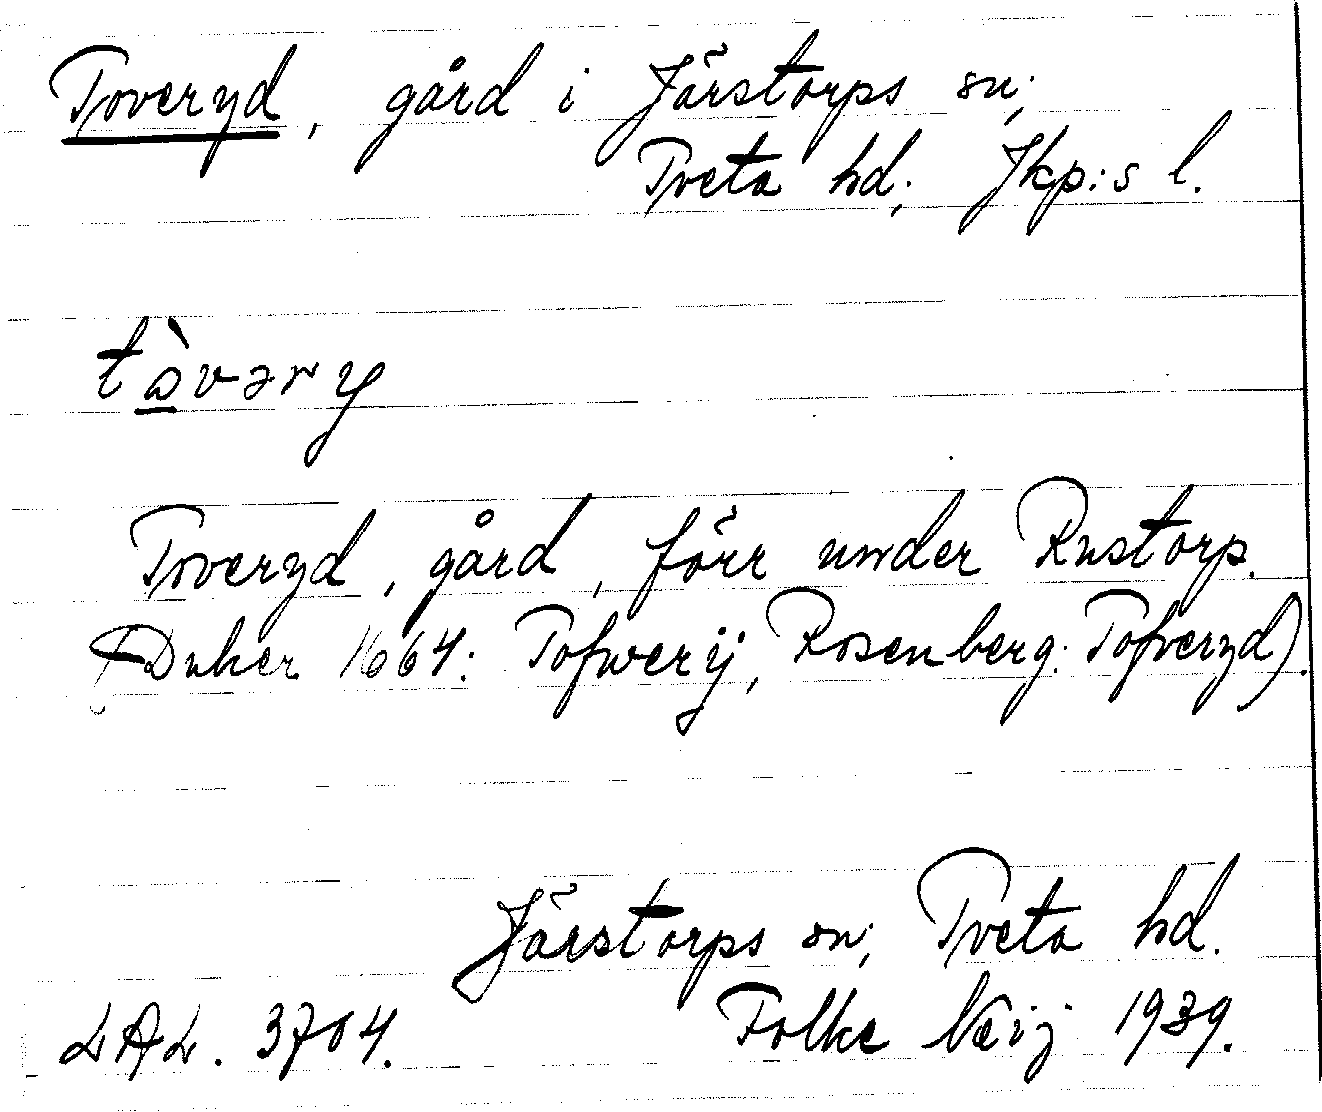 Toveryd, gård i Järstorps sn;
Tveta hd; Jkp:s l.
tòvəry
Toveryd, gård, förr under Rustorp.
(Duker 1664: Tofwerÿ, Rosenberg: Tofveryd).
Järstorps sn; Tveta hd.
LAL. 3704. Folke Neij 1939.